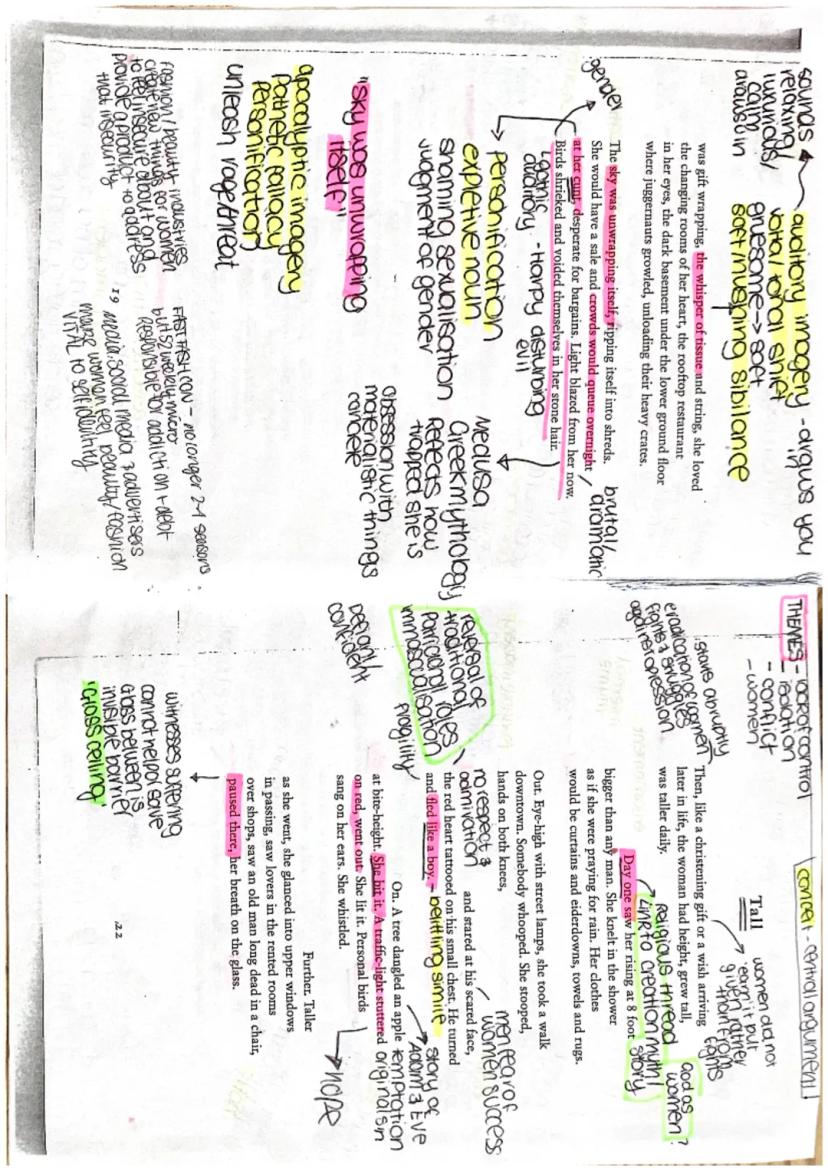 sounds
relaxing/
luxurious/
calm
draws u in
auditory imagery - draws you
volta/tonal shift
gruesome → soft
soft lulling sibilance
was gift wrapping, the whisper of tissue and string, she loved
the changing rooms of her heart, the rooftop restaurant
in her eyes, the dark basement under the lower ground floor
where juggernauts growled, unloading their heavy crates.
gender
The sky was unwrapping itself, ripping itself into shreds.
She would have a sale and crowds would queue overnight
at her cunt, desperate for bargains. Light blazed from her now.
Birds shrieked and voided themselves in her stone hair.
brutal/
dramatic
gothic
auditory - Harpy disturbing
evil
→ personification
expletive noun
shaming sexualisation
judgment of gender
Medusa
Greek mythology
Reflects how
trapped she is
"sky was unwrapping
itself"
obsession with
materialistic things
concrete
apocalyptic imagery
Pathetic fallacy
Personification
unleash rage/threat
Fashion/beauty industries
create new things for women
to feel insecure about and
provide a product to address
that insecurity
FAST FASHION - no longer 2-4 seasons
but 52 weekly micro
Responsible for addiction + debt
19
Media: social media + advertisers
make women feel beauty/fashion
VITAL to self identity
THEMES - lack of control
- isolation
- conflict
- women
conceit - central argument
Tall
women did not
'earn' it but
given rather
than from
fights
starts abruptly
eradication of women
fights & struggles
against oppression
Then, like a christening gift or a wish arriving
later in life, the woman had height, grew tall,
was taller daily.
religious thread
Link to creation myth/
story
God as
women?
Day one saw her rising at 8 foot
bigger than any man. She knelt in the shower
as if she were praying for rain. Her clothes
would be curtains and eiderdowns, towels and rugs.
Out. Eye-high with street lamps, she took a walk
downtown. Somebody whooped. She stooped,
hands on both knees,
no respect &
admiration
and stared at his scared face,
the red heart tattooed on his small chest. He turned
and fled like a boy. - belittling simile
men fear of
women success
reversal of
traditional
Patriarchal roles
immasculalisation
fragility
On. A tree dangled an apple
at bite-height. She bit it. A traffic-light stuttered
on red, went out. She lit it. Personal birds
sang on her ears. She whistled.
story of
Adam & Eve
temptation
original sin
Defiant
confident
→ hope
Further. Taller
as she went, she glanced into upper windows
in passing, saw lovers in the rented rooms
over shops, saw an old man long dead in a chair,
paused there, her breath on the glass.
witnesses suffering
cannot help/save
Glass between is
invisible barrier
'Glass ceiling'
22